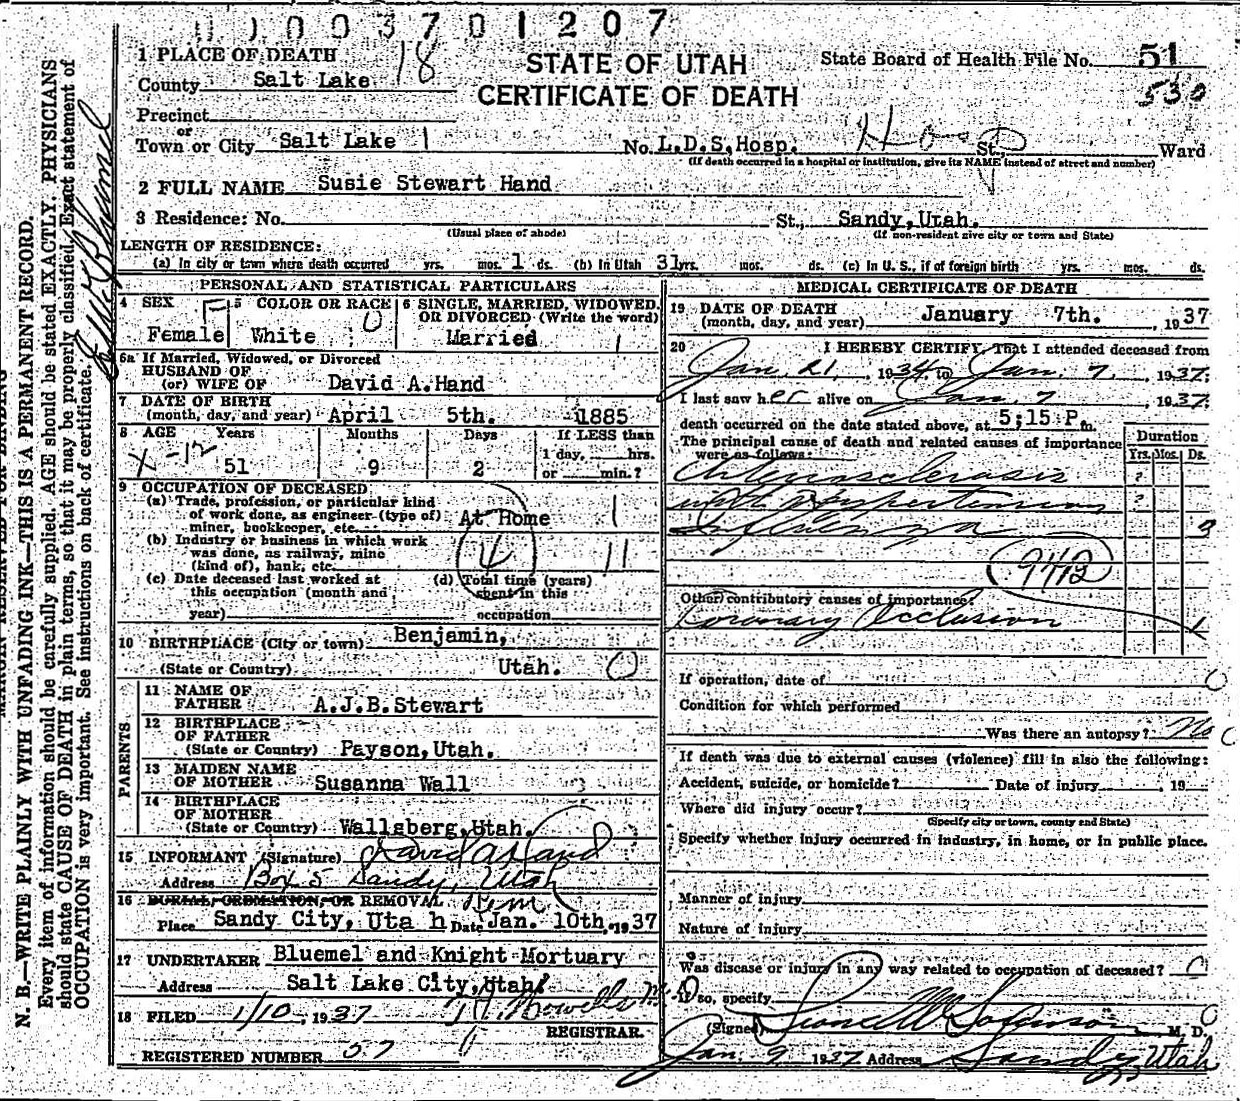 003701207
1 PLACE OF DEATH
County Salt Lake 18
STATE OF UTAH
CERTIFICATE OF DEATH
State Board of Health File No. 51
530
Precinct
or
Town or City Salt Lake 1 No. L.D.S. Hosp. Hosp St., Ward
(If death occurred in a hospital or institution, give its NAME instead of street and number)
2 FULL NAME Susie Stewart Hand
3 Residence: No. St., Sandy, Utah.
(Usual place of abode) (If non-resident give city or town and State)
LENGTH OF RESIDENCE:
(a) In city or town where death occurred yrs. mos. 1 ds. (b) In Utah 31 yrs. mos. ds. (c) In U. S., if of foreign birth yrs. mos. ds.
PERSONAL AND STATISTICAL PARTICULARS
4 SEX 5 COLOR OR RACE 6 SINGLE, MARRIED, WIDOWED,
OR DIVORCED (Write the word)
Female F White 0 Married 1
6a If Married, Widowed, or Divorced
HUSBAND OF
(or) WIFE OF David A. Hand
7 DATE OF BIRTH
(month, day, and year) April 5th. 1885
8 AGE Years Months Days If LESS than
1 day, hrs.
or min.?
X-12 51 9 2
9 OCCUPATION OF DECEASED
(a) Trade, profession, or particular kind
of work done, as engineer (type of)
miner, bookkeeper, etc. At Home 1
(b) Industry or business in which work
was done, as railway, mine
(kind of), bank, etc. 4 11
(c) Date deceased last worked at
this occupation (month and
year)
(d) Total time (years)
spent in this
occupation
10 BIRTHPLACE (City or town) Benjamin,
(State or Country) Utah. 0
PARENTS
11 NAME OF
FATHER A.J.B. Stewart
12 BIRTHPLACE
OF FATHER
(State or Country) Payson, Utah.
13 MAIDEN NAME
OF MOTHER Susanna Wall
14 BIRTHPLACE
OF MOTHER
(State or Country) Wallsberg, Utah.
15 INFORMANT (Signature) David A Hand
Address Box 5 Sandy, Utah
16 BURIAL, CREMATION, OR REMOVAL Rem
Place Sandy City, Uta h Date Jan. 10th, 1937
17 UNDERTAKER Bluemel and Knight Mortuary
Address Salt Lake City, Utah.
18 FILED 1/10, 1937 Howells M.D
REGISTRAR.
REGISTERED NUMBER 57
MEDICAL CERTIFICATE OF DEATH
19 DATE OF DEATH
(month, day, and year) January 7th. , 1937
20 I HEREBY CERTIFY, That I attended deceased from
Jan. 21, 1934, to Jan. 7, 1937.
I last saw her alive on Jan. 7, 1937.
death occurred on the date stated above, at 5;15 P. m.
The principal cause of death and related causes of importance
were as follows:
Duration
Yrs. Mos. Ds.
Arteriosclerosis ?
with Hypertension ?
Influenza 3
94B
Other contributory causes of importance:
Coronary Occlusion 1
If operation, date of 0
Condition for which performed
Was there an autopsy? No
If death was due to external causes (violence) fill in also the following:
Accident, suicide, or homicide? Date of injury , 19
Where did injury occur?
(Specify city or town, county and State)
Specify whether injury occurred in industry, in home, or in public place.
Manner of injury
Nature of injury
Was disease or injury in any way related to occupation of deceased?
If so, specify
(Signed) Sorenson M. D.
Jan. 9 1937 Address Sandy, Utah
N. B.—WRITE PLAINLY WITH UNFADING INK—THIS IS A PERMANENT RECORD.
Every item of information should be carefully supplied. AGE should be stated EXACTLY. PHYSICIANS
should state CAUSE OF DEATH in plain terms, so that it may be properly classified. Exact statement of
OCCUPATION is very important. See instructions on back of certificate.